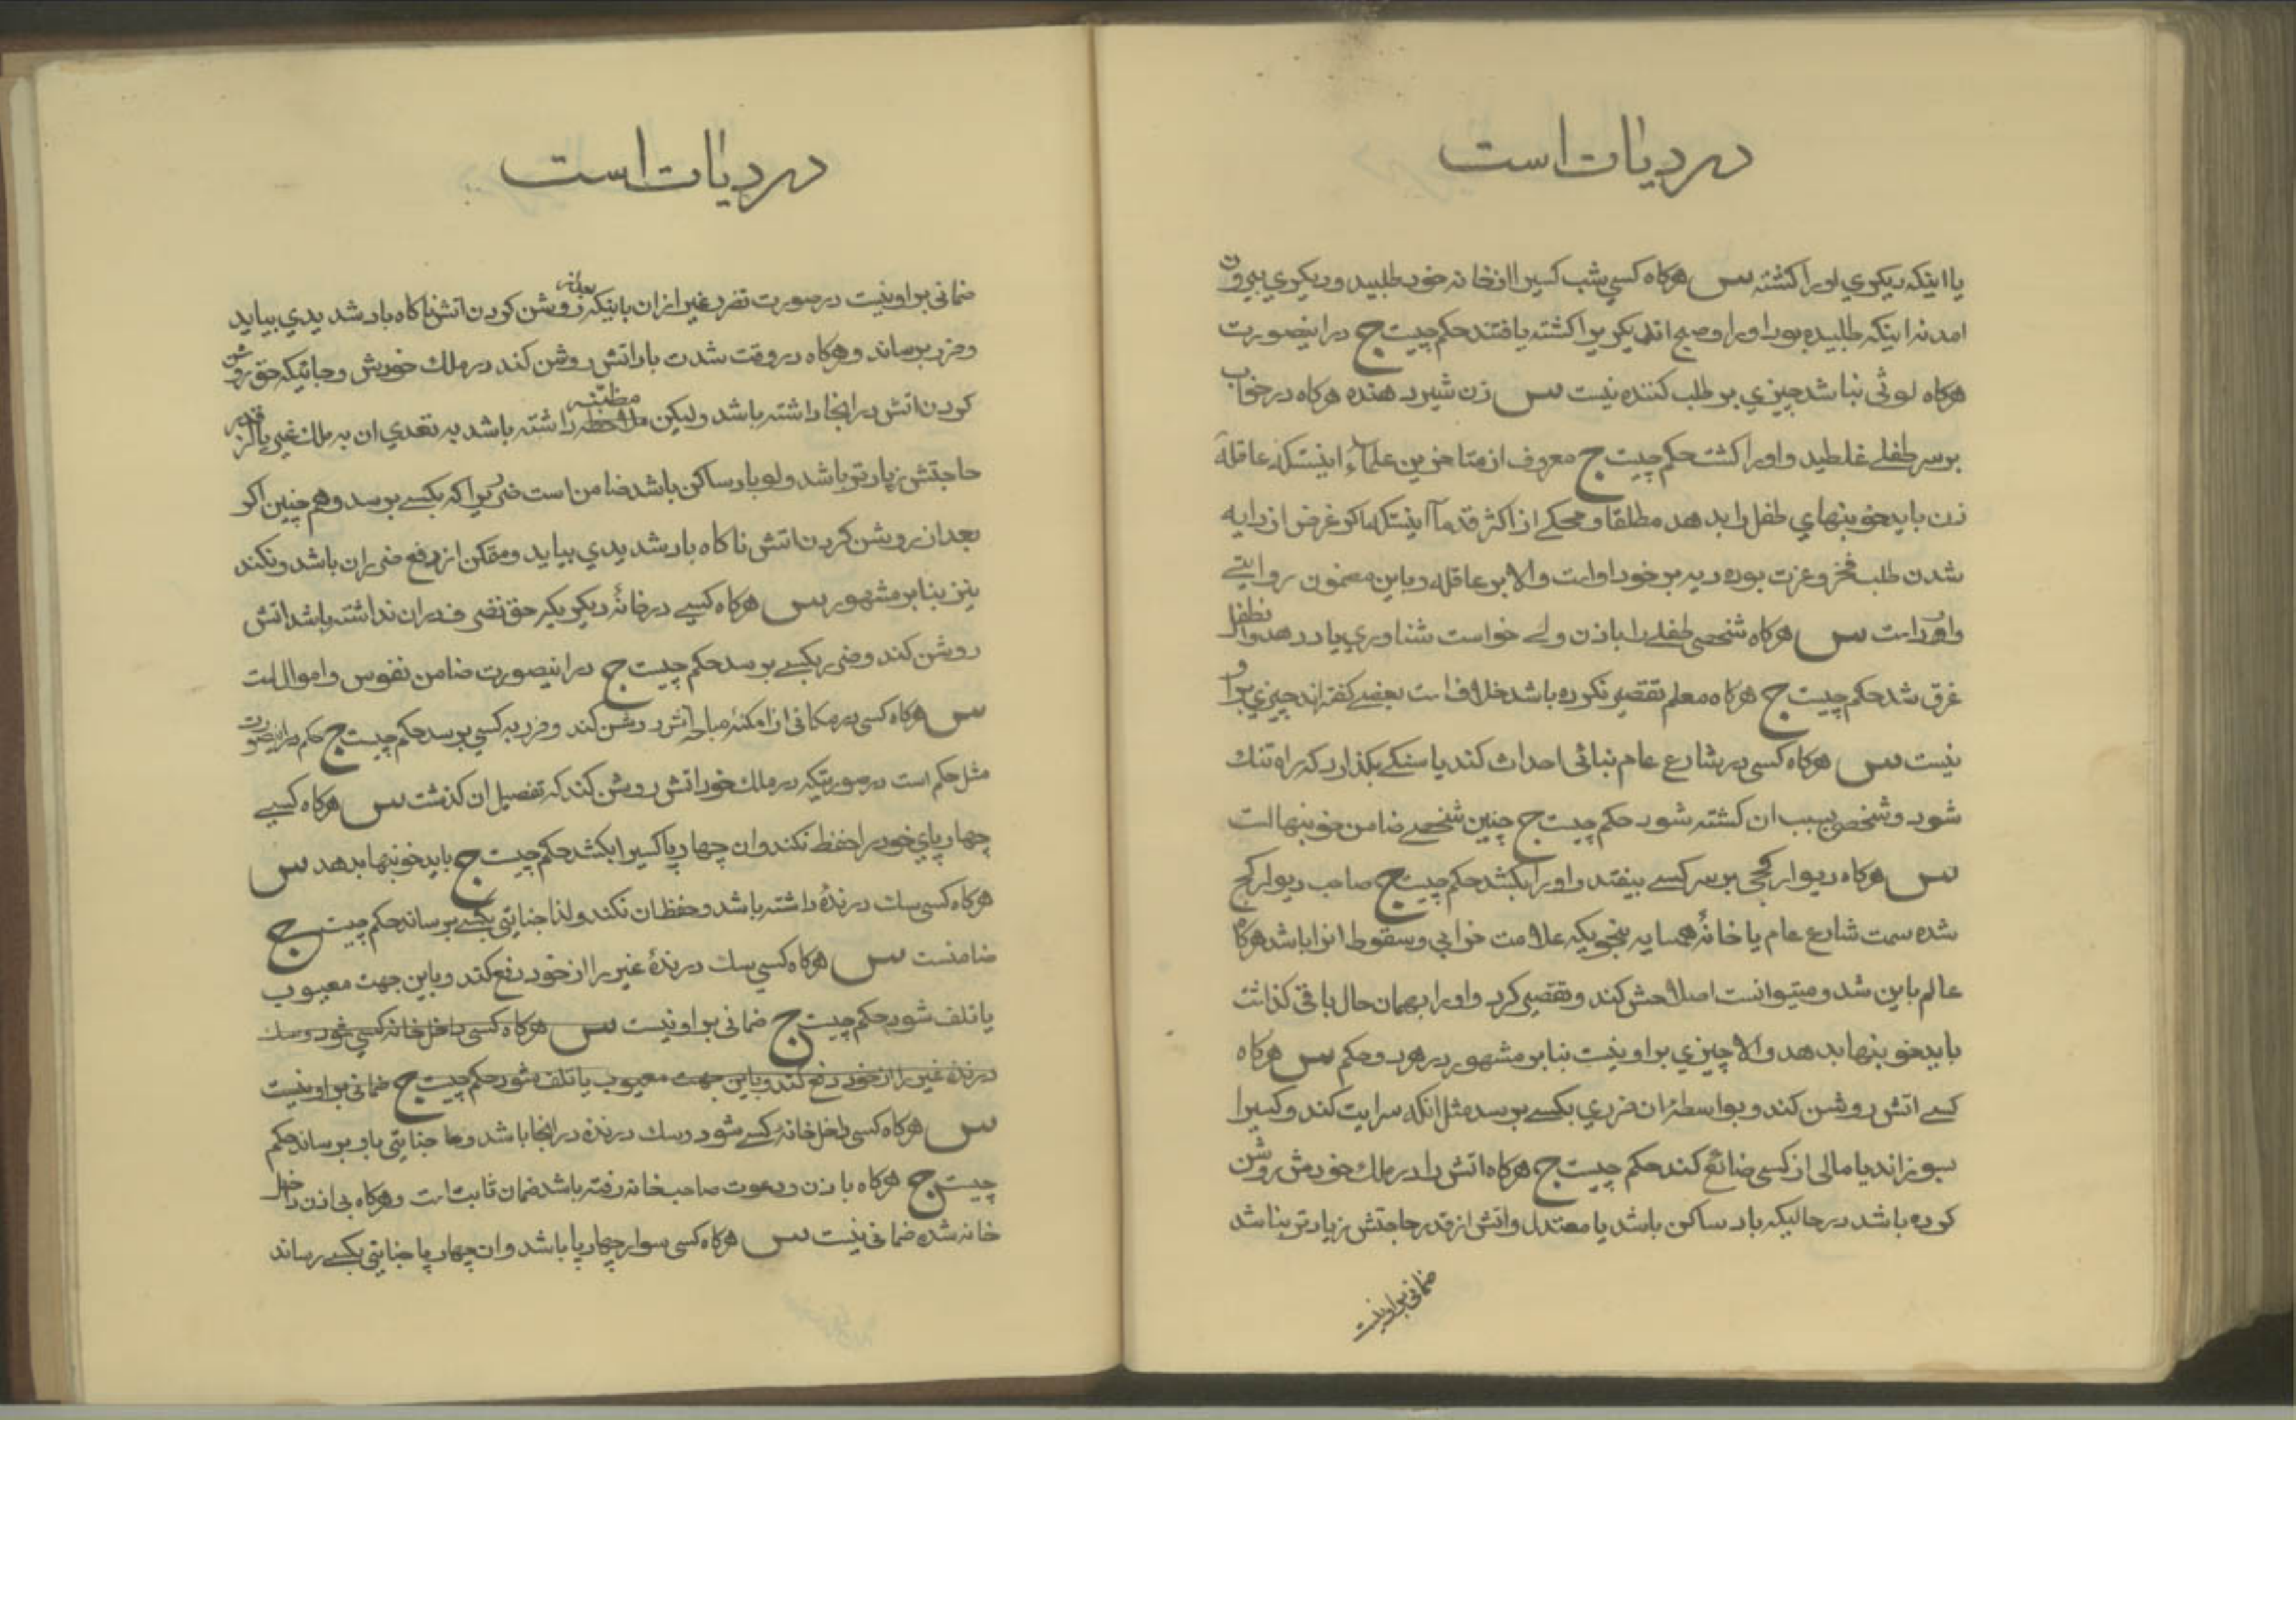 در دیات است
یا اینکه دیکری او را کشته س هرکاه کسی شب کسیرا از خانه خود طلبید و دیکری بیرون
امد نه اینکه طلبیده بود او را و صبح اندیکریرا کشته یافتند حکم چیست ج در اینصورت
هرکاه لوثی نباشد چیزی بر طلب کننده نیست س زن شیر دهنده هرکاه در خواب
بر سر طفلے غلطید و او را کشت حکم چیست ج معروف از متاخرین علماء اینستکه عاقلهٔ
زن باید خونبهای طفل را بدهد مطلقا و محکے از اکثر قدمآ اینستکه اکر غرض از دایه
شدن طلب فخر و عزت بوده دیه بر خود او است والا بر عاقله و باین مضمون روایتے
وارد است س هرکاه شخصی طفلے را باذن ولے خواست شناوری یاد دهد و ان طفل
غرق شد حکم چیست ج هرکاه معلم تقصیر نکرده باشد خلاف است بعضے کفته اند چیزی بر او
نیست س هرکاه کسی در شارع عام بنائی احداث کند یا سنکے بکذارد که راه تنك
شود و شخصی بسبب ان کشته شود حکم چیست ج چنین شخصے ضامن خونبها است
س هرکاه دیوار کجی بر سر کسے بیفتد و او را بکشد حکم چیست ج صاحب دیوار کج
شده سمت شارع عام یا خانهٔ همسایه بنحویکه علامت خرابی و سقوط انرا باشد هرکاه
عالم باین شد و میتوانست اصلاحش کند و تقصیر کرد و او را بهمان حال باقی کذاشت
باید خونبها بدهد والا چیزی بر او نیست بنابر مشهور در هر دو حکم س هرکاه
کسے اتش روشن کند و بواسطهٔ ان ضرری بکسے برسد مثل انکه سرایت کند و کسیرا
بسوزاند یا مالی از کسی ضائع کند حکم چیست ج هرکاه اتش را در ملك خودش روشن
کرده باشد در حالیکه باد ساکن باشد یا معتدل و اتش از قدر حاجتش زیادتر نباشد
ضمانی بر او نیست
در دیات است
ضمانی بر او نیست در صورت تضرر غیر از ان باینکه بعد از روشن کردن اتش ناکاه باد شدیدی بیاید
و ضرر برساند و هرکاه در وقت شدت باد اتش روشن کند در ملك خویش و جائیکه حق روشن
کردن اتش در انجا داشته باشد ولیکن مظنّه داشته باشد به تعدی ان به ملك غیر یا از قدر
حاجتش زیادتر باشد ولو باد ساکن باشد ضامن است ضرریرا که بکسے برسد و هم چنین اکر
بعد از روشن کردن اتش ناکاه باد شدیدی بیاید و متمکن از دفع ضرر ان باشد و نکند
نیز بنابر مشهور س هرکاه کسے در خانهٔ دیکر یکه حق تصرف در ان نداشته باشد اتش
روشن کند و ضرر بکسے برسد حکم چیست ج در اینصورت ضامن نفوس و اموال است
س هرکاه کسی در مکانی از امکنهٔ مباحه آتش روشن کند و ضرر به کسی برسد حکم چیست ج حکم در اینصورت
مثل حکم است در صورتیکه در ملك خود اتش روشن کند که تفصیل ان کذشت س هرکاه کسے
چهارپای خود را حفظ نکند و ان چهارپا کسیرا بکشد حکم چیست ج باید خونبها بدهد س
هرکاه کسی سك درندهٔ داشته باشد و حفظ ان نکند و لذا جنایتی بکسے برساند حکم چیست ج
ضامنست س هرکاه کسی سك درندهٔ غیر را از خود دفع کند و باین جهت معیوب
یا تلف شود حکم چیست ج ضمانی بر او نیست س هرکاه کسی داخل خانه کسی شود و سك
درنده غیر را از خود دفع کند و باین جهت معیوب یا تلف شود حکم چیست ج ضمانی بر او نیست
س هرکاه کسی داخل خانه کسے شود و سك درنده در انجا باشد و جنایتی باو برساند حکم
چیست ج هرکاه باذن و دعوت صاحبخانه رفته باشد ضمان ثابت است و هرکاه بی اذن داخل
خانه شده ضمانی نیست س هرکاه کسی سوار چهارپا باشد و ان چهارپا جنایتی بکسے رساند